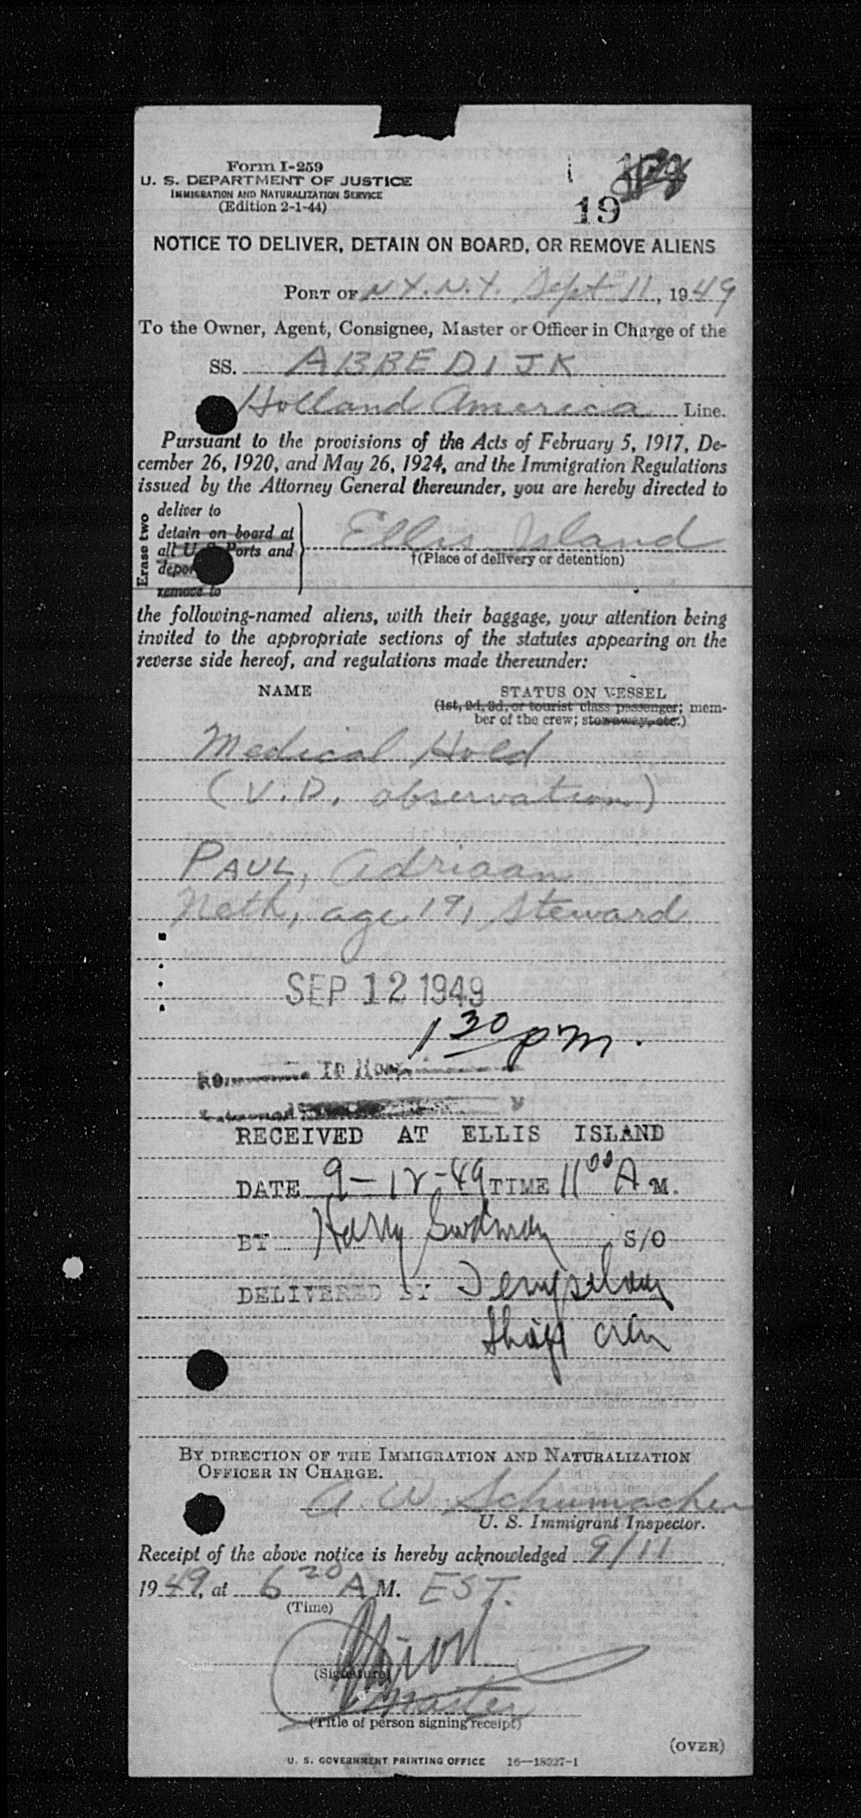 Form I-259
U. S. DEPARTMENT OF JUSTICE
IMMIGRATION AND NATURALIZATION SERVICE
(Edition 2-1-44)
19
NOTICE TO DELIVER, DETAIN ON BOARD, OR REMOVE ALIENS
PORT OF N.Y. N.Y. Sept 11, 1949
To the Owner, Agent, Consignee, Master or Officer in Charge of the
SS. ABBEDIJK
Holland America Line.
Pursuant to the provisions of the Acts of February 5, 1917, De-
cember 26, 1920, and May 26, 1924, and the Immigration Regulations
issued by the Attorney General thereunder, you are hereby directed to
Erase two
deliver to
detain on board at
all U. S. Ports and
deport
remove to
Ellis Island
†(Place of delivery or detention)
the following-named aliens, with their baggage, your attention being
invited to the appropriate sections of the statutes appearing on the
reverse side hereof, and regulations made thereunder:
NAME STATUS ON VESSEL
(1st, 2d, 3d, or tourist class passenger; mem-
ber of the crew; stowaway, etc.)
Medical Hold
(V.D. observation)
PAUL, Adriaan
Neth, age 19, Steward
SEP 12 1949
1 30 pm.
To Hosp
RECEIVED AT ELLIS ISLAND
DATE 9-12-49 TIME 11 00 A M.
BY Harry S/O
DELIVERED BY
BY DIRECTION OF THE IMMIGRATION AND NATURALIZATION
OFFICER IN CHARGE.
A. W. Schumacher
U. S. Immigrant Inspector.
Receipt of the above notice is hereby acknowledged 9/11
1949, at 6 20 A M. EST.
(Time)
(Signature)
Master
(Title of person signing receipt)
(OVER)
U. S. GOVERNMENT PRINTING OFFICE 16—18227-1